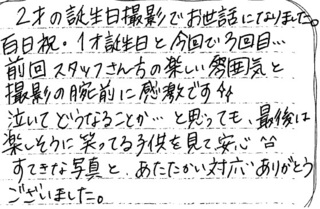 2才の誕生日撮影でお世話になりました。
百日祝・1才誕生日と今回で3回目…
前回スタッフさん方の楽しい雰囲気と
撮影の腕前に感激です♪♪
泣いてどうなることか…と思っても、最後は
楽しそうに笑ってる子供を見て安心 ^^
すてきな写真と、あたたかい対応ありがとう
ございました。